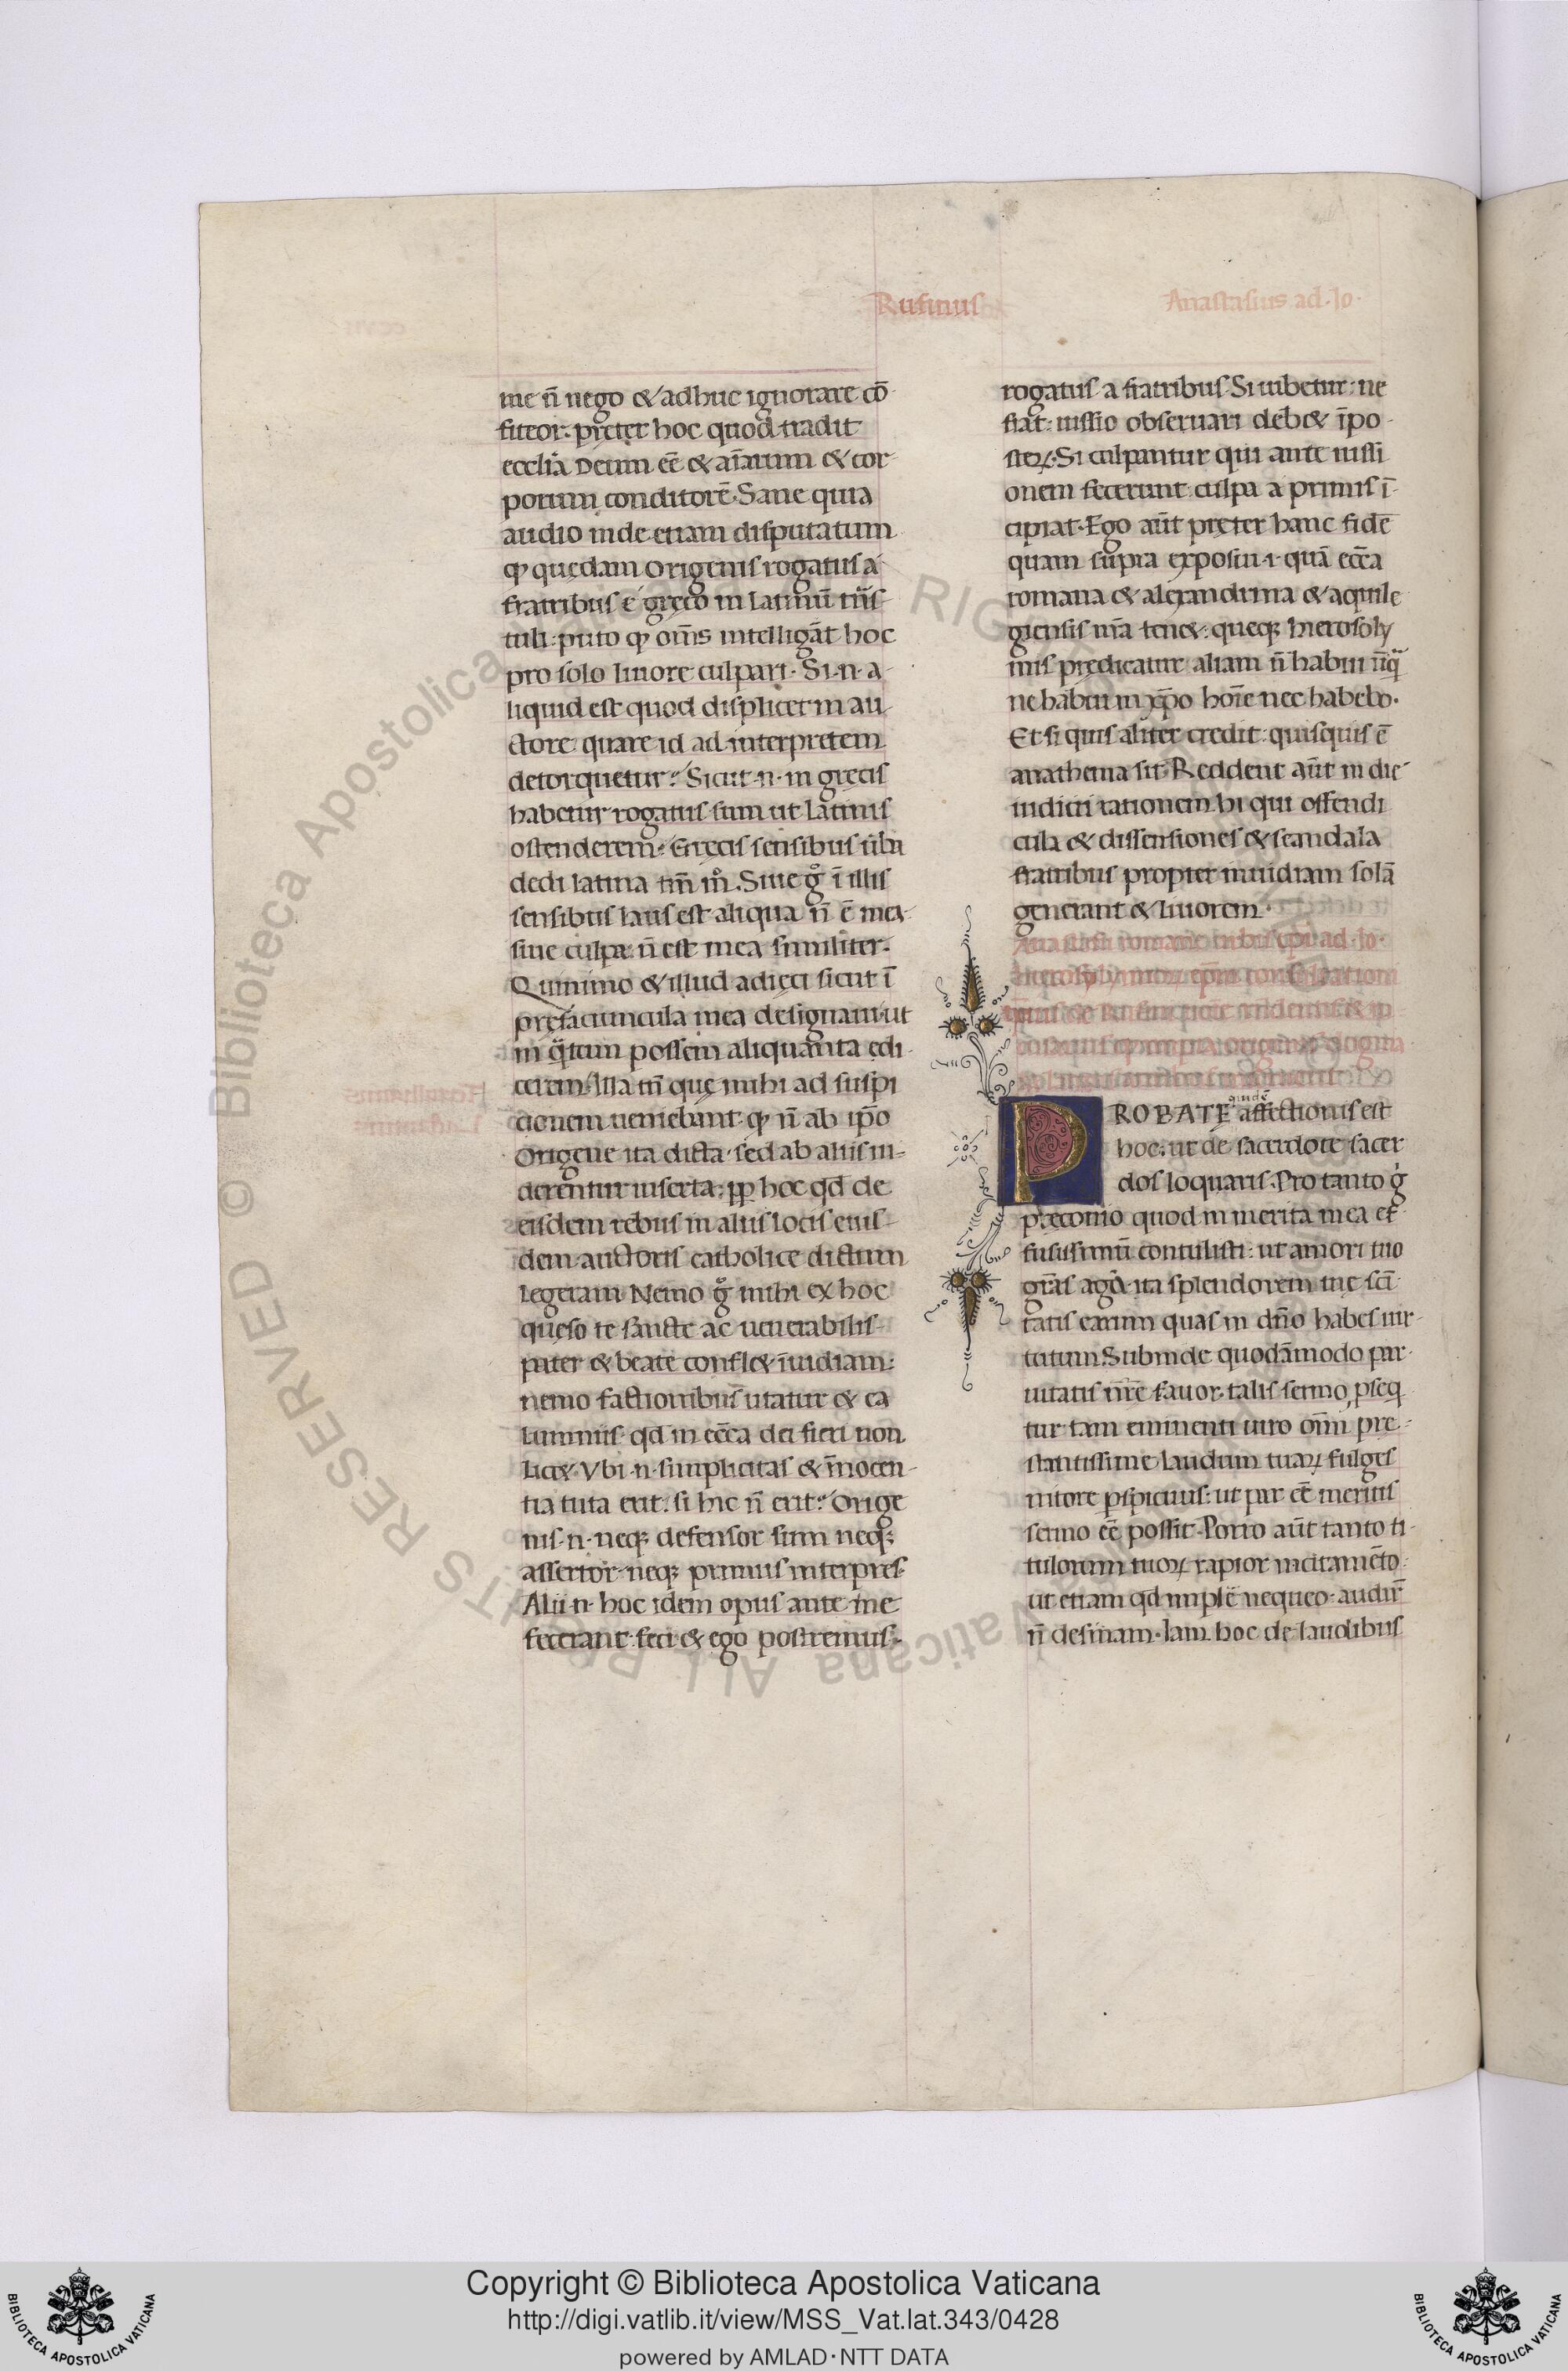 Rufinus
Anastasius ad·Jo·
me n̄ nego & adhuc ignorare cō-
fiteor. pręter hoc quod tradit
ecclia Deum eē & aīarum & cor-
porum conditorē. Sane quia
audio inde etiam disputatum
qꝫ quędam Origenis rogatus a
fratribus e gręco in latinū trās-
tuli: puto qꝫ om̄s intelligāt hoc
pro solo liuore culpari. Si·n·a-
liquid est quod displicet in au-
ctore: quare id ad interpretem
detorquetur? Sicut·n·in gręcis
habetur rogatus sum ut latinis
ostenderem. Gręcis sensibus ūba
dedi latina tm̄ m̊. Siue g̊ ī illis
sensibus laus est aliqua n̄ ē mea.
siue culpa: n̄ est mea similiter.
Quinimo & illud adięci sicut ī
pręfaciuncula mea designaui: ut
in q̄tum possem aliquanta edi-
cerem. Illa tn̄ quę mihi ad suspi
cionem ueniebant: qꝫ n̄ ab ip̄o
Origene ita dicta sed ab aliis ui-
derentur inserta: ꝓp hoc qd de
eisdem rebus in aliis locis eius-
dem auctoris catholice dictum
legeram. Nemo g̊ mihi ex hoc
queso te sancte ac uenerabilis
pater & beate confl& īuidiam:
nemo factionibus utatur & ca
lumniis qd in ecc̄a dei fieri non
lic&. Vbi·n·simplicitas & īnocen-
tia tuta erit. si hic n̄ erit? Orige
nis·n·neqꝫ defensor sum neqꝫ
assertor: neqꝫ primus interpres.
Alii·n·hoc idem opus ante me
fecerant. feci & ego postremus.
rogatus a fratribus. Si iubetur: ne
fiat: iussio obseruari deb& īpo-
steꝝ. Si culpantur qui ante iussi
onem fecerunt: culpa a primis ī-
cipiat. Ego aūt pręter hanc fidē
quam supra exposui·i·quā ecc̄a
romana & alexandrina & aquile
giensis nr̄a ten&: queqꝫ hierosoly
mis prędicatur aliam n̄ habui nq̄
ne habui in xp̄o hoīe nec habebo.
Et si quis aliter credit: quisquis ē
anathema sit. Reddent aūt in die
iudicii rationem hi qui offendi
cula & dissensiones & scandala
fratribus propter inuidiam solā
generant & liuorem.
quidē
PROBATE affectionis est
hoc: ut de sacerdote sacer
dos loquaris. Pro tanto g̊
pręconio quod in merita mea ef-
fusissimū contulisti: ut amori tuo
grās agā. ita splendorem me sc̄i-
tatis earum quas in dn̄o habes uir-
tutum. Subinde quodāmodo par-
uitatis nr̄e fauor talis sermo ꝑseq
tur tam eminenti uiro om̄i pre-
stantissime laudum tuaꝝ fulges
nitore ꝑspicuus: ut par eē meritis
sermo eē possit. Porro aūt tanto ti-
tulorum tuoꝝ rapior incitamēto:
ut etiam qd implē nequeo: audir̄
n̄ desinam. Iam hoc de laudibus
Copyright © Biblioteca Apostolica Vaticana
http://digi.vatlib.it/view/MSS_Vat.lat.343/0428
powered by AMLAD·NTT DATA
BIBLIOTECA APOSTOLICA VATICANA
BIBLIOTECA APOSTOLICA VATICANA
© Biblioteca Apostolica Vaticana ALL RIGHTS RESERVED